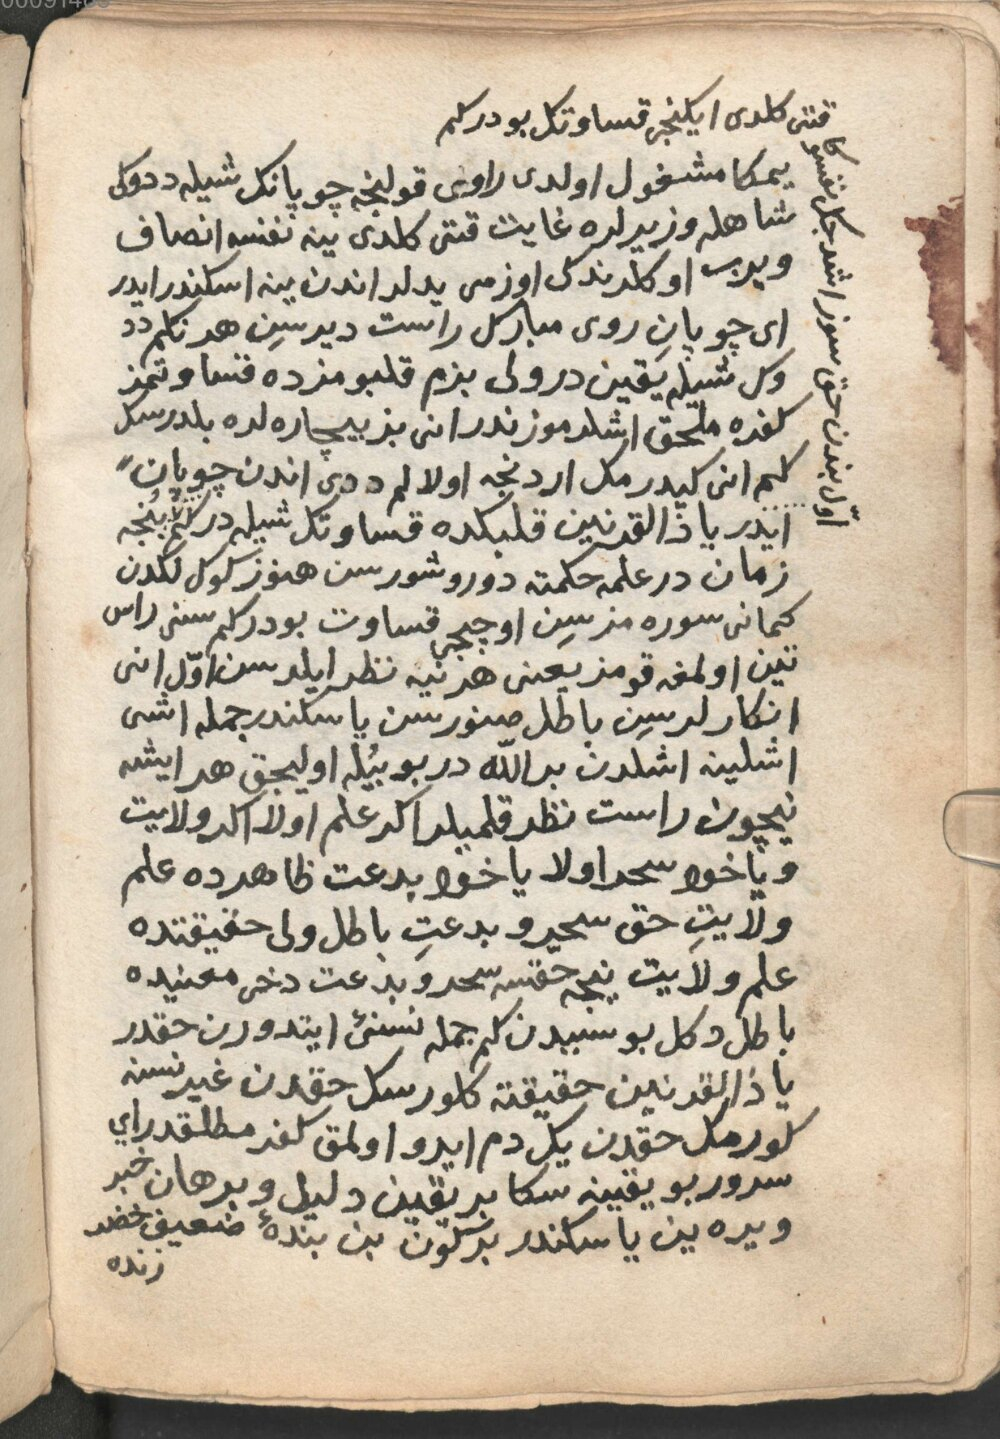 قتی کلدی ایکنجی قساوتک بودرکم
یمکا مشغول اولدی راوی قولنجه چوپانک شیله ددوکی
شاهله وزیرلره غایت قتی کلدی ینه نفسه انصاف
ویرب اوکلرندکی اوزمی یدلر اندن ینه اسکندر ایدر
ای چوپان روی مبارکل راست دیرسن هر نکم دد
وکل شیله یقین درولی بزم قلبومزده قساوتمز
کفره ملحق اشلرموزندر انی بز بیچاره لره بلدرسک
کم انی کیدرمک اردنجه اولالم ددی اندن چوپان
ایدر یا ذالقرنین قلبکده قساوتک شیله درکم بنجه
زمان در علمه حکمته دوروشورسن هنوز کوکل لکدن
کمانی سوره مزسن اوچنجی قساوت بودرکم سنی راس
تین اولمغه قومز یعنی هر نیه نظر ایلرسن اوّل انی
انکارلرسن باطل صنورسن یا سکندر جمله اشی
اشلینه اشلدن بر اللّه در بو بیُله اولیجق هر ایشه
نیچون راست نظر قلمیلر اکر علم اولا اکر ولایت
و یا خوا سحر اولا یا خوا بدعت ظاهرده علم
ولایتِ حق سحیر و بدعتِ باطل ولی حقیقتده
علم ولایت نیجه حقسه سحر و بدعت دخی معنیده
باطل دکل بو سببدن کم جمله نسنیٔ ایتدورن حقدر
یا ذالقرنین حقیقته کلورسک حقدن غیر نسنه
کورمک حقدن یک دم ایرو اولمق کفر مطلقدر ای
سرور بو یقینه سکا بر یقین دلیل و برهان خبر
ویره ین یا سکندر بر کون بن بندهٔ ضعیف خضر
زنده
اوّل بندن حق سوز اشدجک نفسوکا